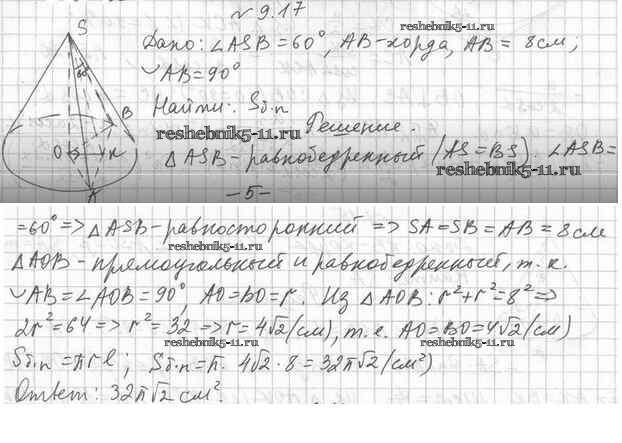 № 9.17
reshebnik5-11.ru
Дано: ∠ASB = 60°, AB-хорда, AB = 8 см;
◡AB = 90°
Найти: Sб.п
reshebnik5-11.ru
Решение.
△ASB - равнобедренный (AS = BS). ∠ASB =
reshebnik5-11.ru
-5-
= 60° => △ASB - равносторонний => SA = SB = AB = 8 см
reshebnik5-11.ru
△AOB - прямоугольный и равнобедренный, т.к.
◡AB = ∠AOB = 90°, AO = BO = r. Из △AOB: r² + r² = 8² =>
2r² = 64 => r² = 32 => r = 4√2 (см), т.е. AO = BO = 4√2 (см)
reshebnik5-11.ru
reshebnik5-11.ru
Sб.п = πrl; Sб.п = π · 4√2 · 8 = 32π√2 (см²)
Ответ: 32π√2 см².
S
60°
B
O
K
A